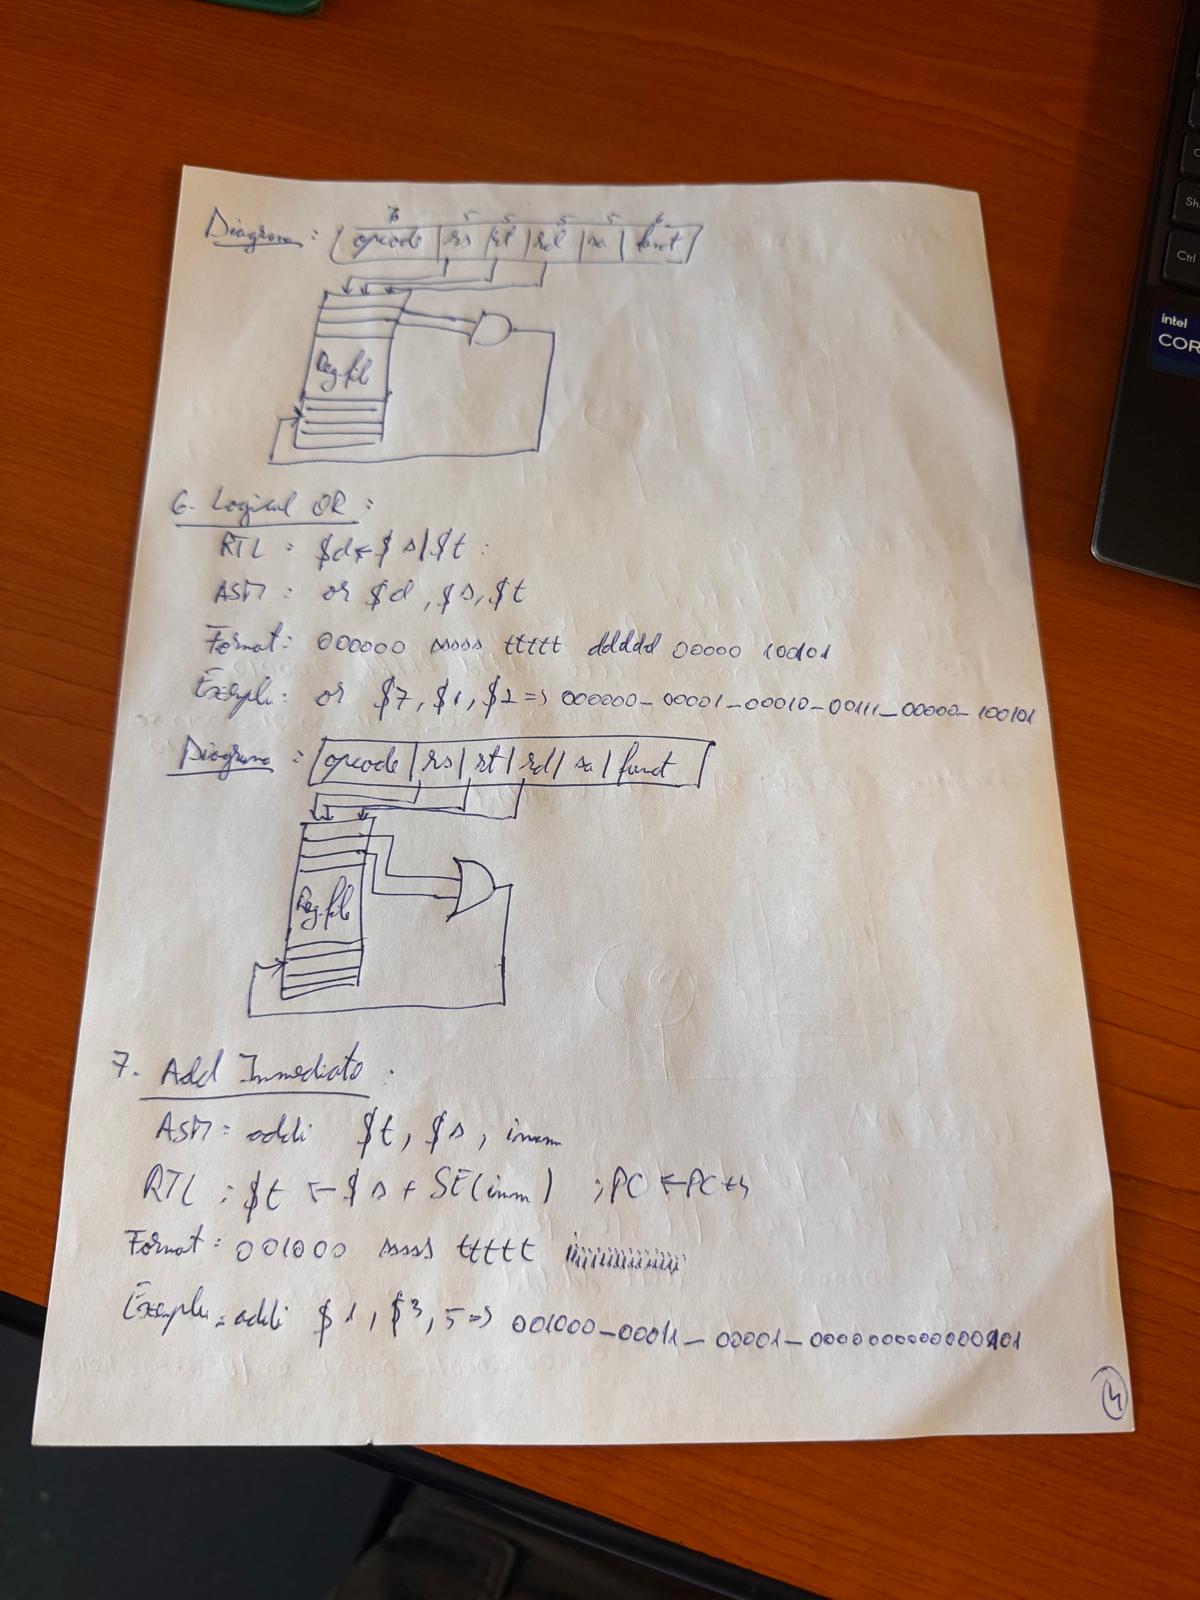 Diagrama: opcode | rs | rt | rd | sa | funct
6 5 5 5 5 6
Reg. file
6. Logical OR:
RTL: $d ← $s | $t;
ASM: or $d, $s, $t
Format: 000000 sssss ttttt ddddd 00000 100101
Exemplu: or $7, $1, $2 => 000000_00001_00010_00111_00000_100101
Diagrama: opcode | rs | rt | rd | sa | funct
Reg. file
7. Add Immediate
ASM: addi $t, $s, imm
RTL: $t ← $s + SE(imm) ; PC ← PC+4
Format: 001000 sssss ttttt iiiiiiiiiiiiiiii
Exemplu: addi $1, $3, 5 => 001000_00011_00001_0000000000000101
4
intel
CORE
Ctrl